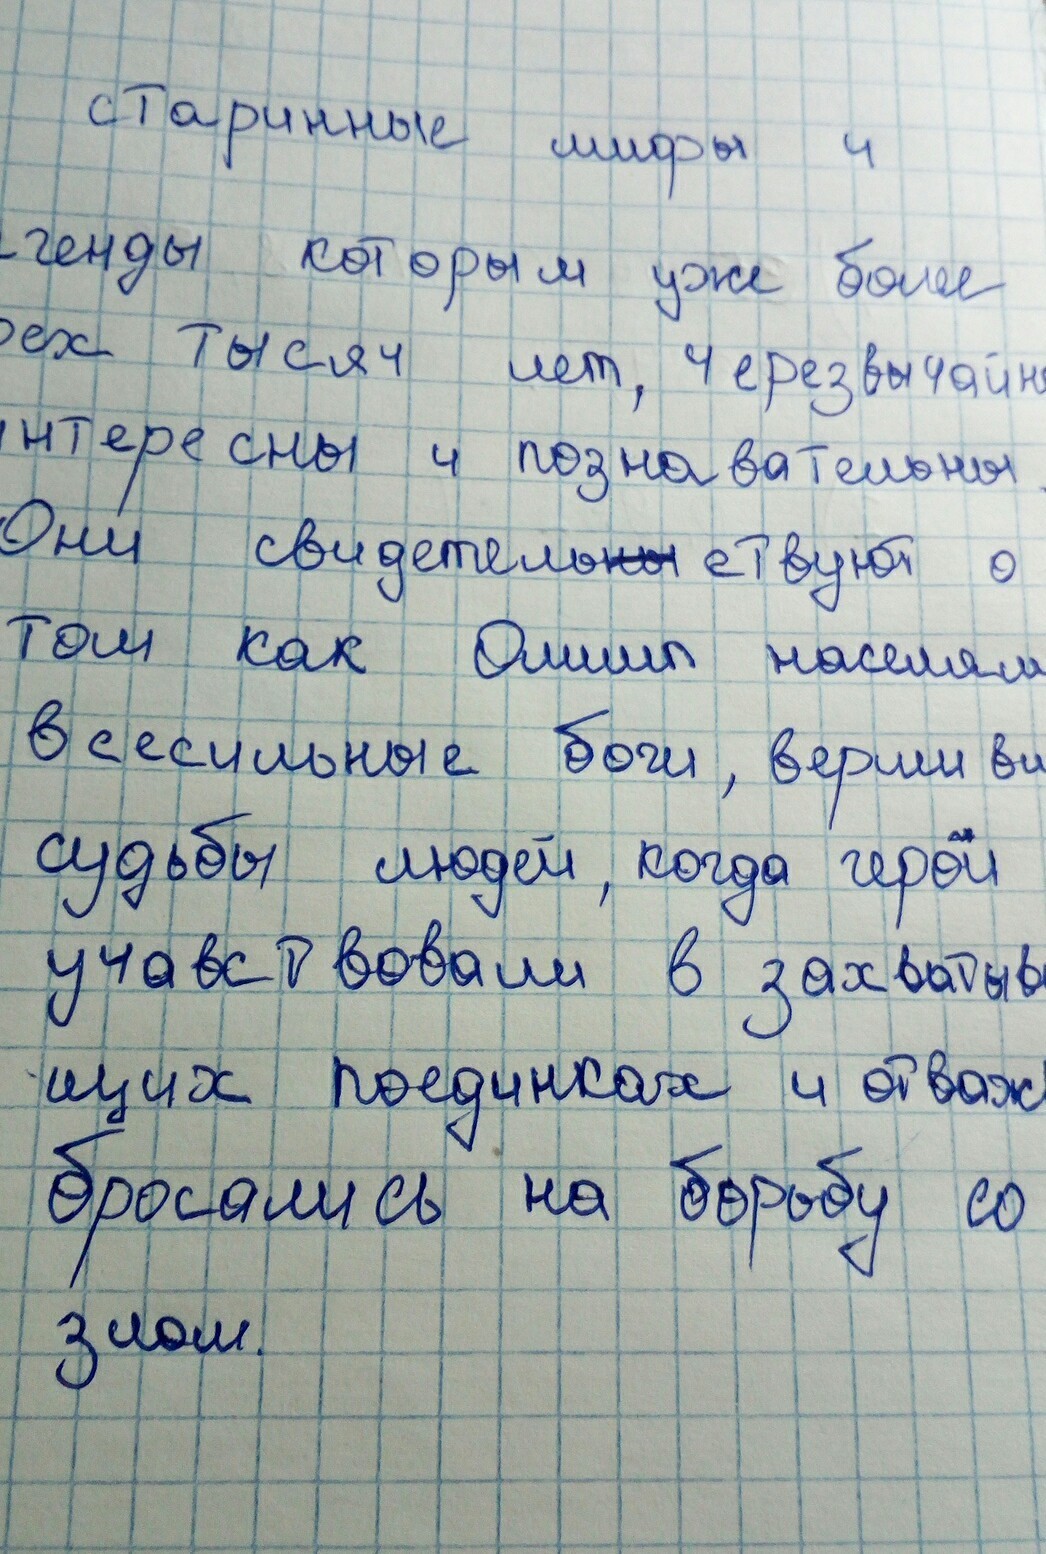 старинные мифы и
генды которым уже более
рех тысяч лет, черезвычайн
интересны и познавательны.
Они свидетельствуют о
том как Олимп населял
всесильные боги, вершиви
судьбы людей, когда герой
учавствовали в захватыв
щих поединках и отваж
бросались на борьбу со
злом.